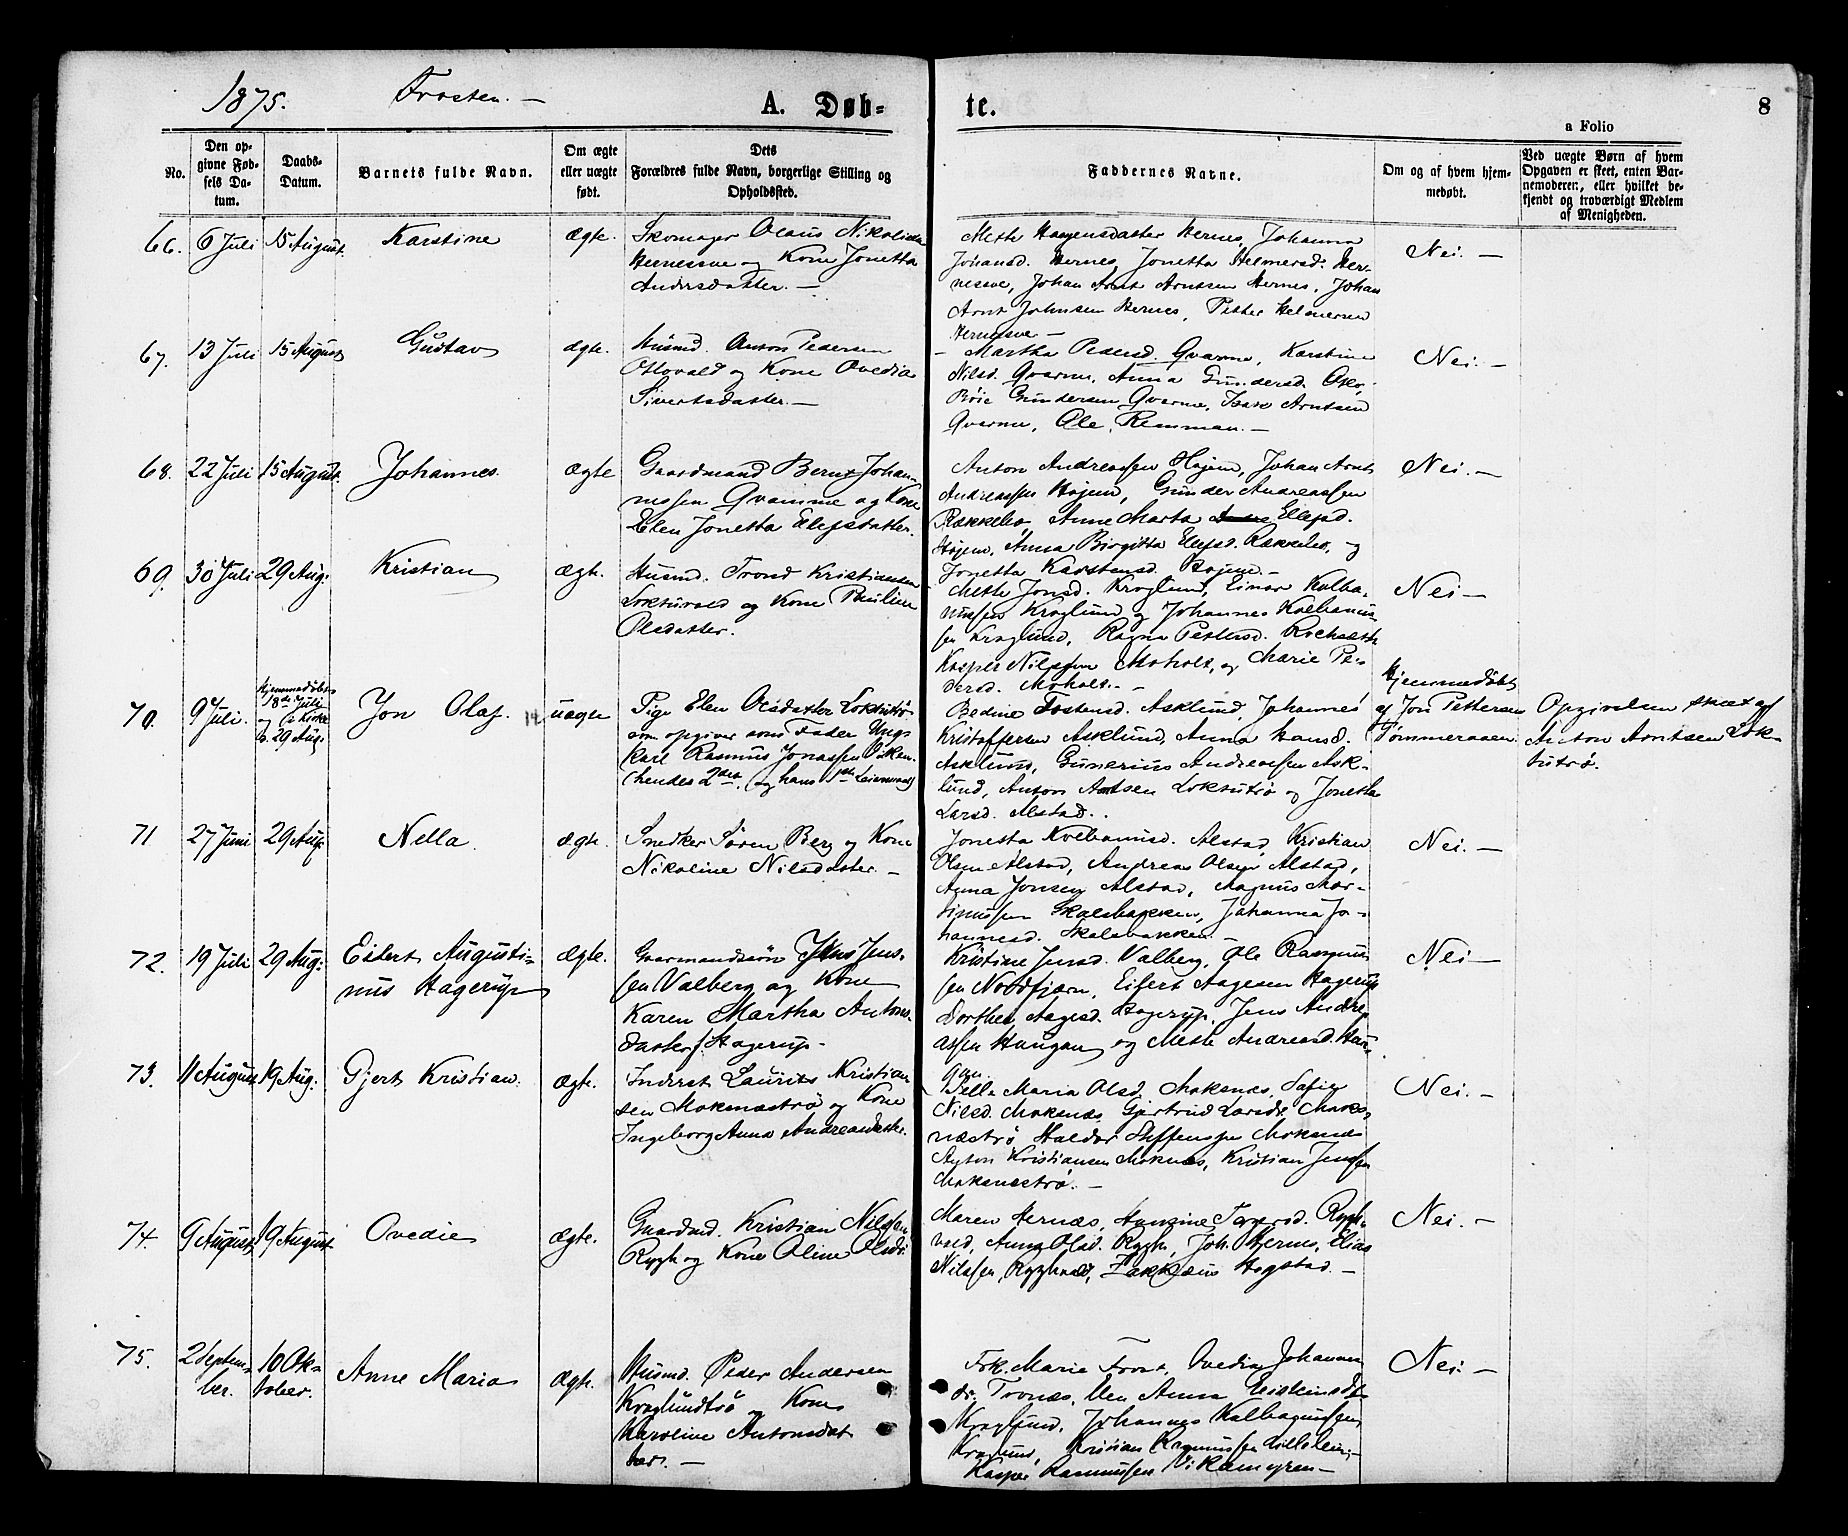 1875. Frosten. —
A. Døb= te.
8
a Folio
No.
Den op-
givne Fød-
sels Da-
tum.
Daabs-
Datum.
Barnets fulde Navn.
Om ægte
eller uægte
født.
Dets
Forældres fulde Navn, borgerlige Stilling og
Opholdssted.
Faddernes Navne.
Om og af hvem hjem-
medøbt.
Ved uægte Børn af hvem
Opgaven er skeet, enten Bar-
nemoderen, eller hvilket be-
kjendt og troværdigt Medlem
af Menigheden.
66. 6 Juli 15 August. Karstine ægte.
Skomager Olaus Nikolisen
Hernesøve og Kone Jonetta
Andersdatter. —
Mette Haagensdatter Hernes, Johanna
Johansd. Hernes, Jonetta Helmersd. Her-
nesøve, Johan Arnt Arntsen Hernes, Johan
Arnt Johnsen Hernes, Petter Helmersen
Hernesøve —
Nei. —
67. 13 Juli 15 August Gustav ægte.
Husmd. Anton Pedersen
Ottovald og Kone Ovedia
Sivertsdatter. —
Martha Pedersd. Qvamme, Karstine
Nilsd. Qvamme, Anna Gundersd.
Gundersen Qvamme, Isak Arntsen
Qvamme, Ole Remman. —
Nei. —
68. 22 Juli 15 August Johannes ægte
Gaardmand Bernt Johan-
nessen Qvamme og Kone
Elen Jonetta Elefsdatter.
Anton Andreassen Højem, Johan Arnt
Andreassen Højem, Gunder Andreassen
Rækkebo, Anne Marta Ellefsd.
Højem, Anna Birgitta Ellefsd. Rækkebo, og
Jonetta Karstensd. Højem —
Nei. —
69. 30 Juli 29 Aug: Kristian ægte.
Husmd. Trond Kristiansen
Loktuvald og Kone Pauline
Olsdatter.
Mette Jonsd. Kroglund, Einar Kolba-
nussen Kroglund og Johannes Kolbanus-
sen Kroglund, Ragna Pettersd. Rochseth
Kasper Nilssen Moholt, og Marie Pe-
dersd. Moholt. —
Nei —
70. 9 Juli.
Hjemmedøbt
18de Juli
og i Kirke
d. 29 Aug:
Jon Olaf. uægte
Pige Elen Olsdatter Loktutrø
som opgiver som Fader Ung-
karl Rasmus Jonassen
(hendes 2det, og hans 1ste Leiermaal)
Bedine Tostensd. Asklund, Johannes
Kristoffersen Asklund, Anna Hansd.
Asklund, Gunerius Andreassen Ask-
lund, Anton Arntsen Loktutrø og Jonetta
Larsd. Alstad.
Hjemmedøbt
af Jon Pettersen
Tømmeraasen
Opgivelsen skeet af
Anton Arntsen Lok-
tutrø.
71 27 Juni 29 Aug. Nella. ægte.
Snedker Søren Berg og Kone
Nikoline Nilsdatter —
Jonetta Kolbanusd. Alstad, Kristian
Olsen Alstad, Andreas Olsen Alstad,
Anna Jonsen Alstad, Magnus Mar-
tinussen Skalsbakken, Johanna Jo-
hannesd. Skalsbakken. —
Nei. —
72. 19 Juli 29 Aug: Eilert Augusti-
nus Hagerup ægte.
Gaarmandssøn Jens Jens-
sen Valberg og Kone
Karen Martha Antons-
datter f. Hagerup —
Kristine Jensd. Valberg, Ole Rasmus-
sen Nordfjærn, Eilert Aagesen Hagerup
Dorthea Aagesd. Hagerup, Jens Andre-
assen Haugan og Mette Andreasd. Hau-
gan.
Nei —
73. 11 August 19 Aug: Gjert Kristian. ægte.
Inderst Laurits Kristian-
sen Moksnæstrø og Kone
Ingeborg Anna Andreasdatter.
Pella Maria Olsd. Moksnæs, Sofie
Nilsd. Moksnæs, Gjertrud Larsdr. Moks-
næstrø, Haldor Steffenssen Moksnæs
Anton Kristiansen Moksnæs, Kristian Jenssen
Moksnæstrø. —
Nei. —
74. 9 August 19 August Ovedie ægte.
Gaardmd. Kristian Nilssen
Rygh og Kone Oline Olsdr.
Maren Hernæs, Hansine Rygh-
vold, Anna Olsd. Rygh, Joh. Hernes, Elias
Nilssen Ryghnæs, Zakkæus Hogstad. —
Nei. —
75. 2 Septem-
ber. 10 Ok-
tober. Anne Maria ægte.
Husmd. Peder Andersen
Kroglundtrø og Kone
Karoline Antonsdat-
ter. —
Frk. Marie Frost, Ovedia Johannes-
dr. Trones, Elen Anna Eisteinsdtr.
Kroglund, Johannes Kolbanussen
Kroglund, Kristian Rasmussen
Kasper Rasmussen Vikamyren —
Nei. —